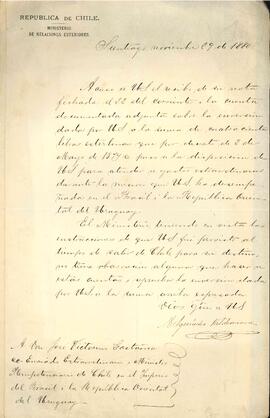 REPUBLICA DE CHILE.
MINISTERIO
DE RELACIONES EXTERIORES.
Santiago, noviembre 29 de 1880
Acuso a US el recibo de su nota
fechada el 22 del corriente i la cuenta
documentada adjunta sobre la inversion
dada por US a la suma de cuatrocientas
libras esterlinas que por decreto de 2 de
Mayo de 1879 se puso a la disposicion de
US para atender a gastos estraordinarios
durante la mision que US ha desempe-
ñado en el Brasil i la República Orien-
tal del Uruguay.
El Ministerio teniendo en vista las
instrucciones de que US fué provisto al
tiempo de salir de Chile para su destino,
no tiene observacion alguna que hacer a
estas cuentas i aprueba la inversion dada
por US a la suma antes espresada.
Dios gue a US
Valderrama
A Don José Victorino Lastarria
ex Enviado Estraordinario i Ministro
Plenipotenciario de Chile en el Imperio
del Brasil i la República Oriental
del Uruguay.